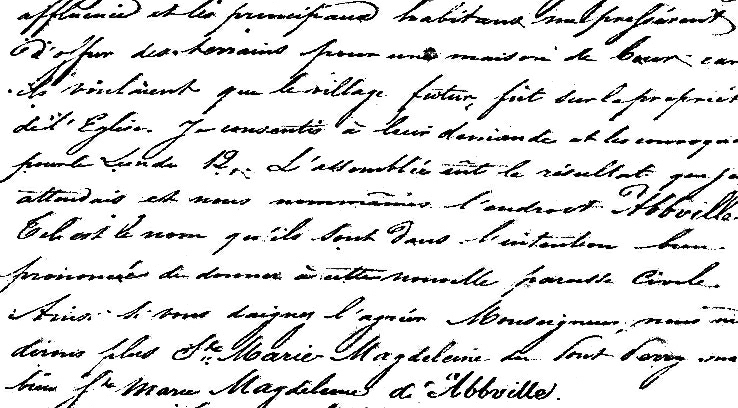 affluence et les principaux habitans me pressèrent
d'offrir des terrains pour une maison de Cour car
ils voulaient que le village futur fût sur la propriété
de l'Eglise. Je consentis à leur demande et les convoquai
pour le Lundi 12. L'assemblée eût le résultat que j'
attendais et nous nommâmes l'endroit "Abbville."
Tel est le nom qu'ils sont dans l'intention bien
prononcée de donner à cette nouvelle paroisse Civile.
Ainsi si vous daignez l'agréer Monseigneur, nous ne
dirons plus Ste Marie Magdeleine du Pont Perry mais
bien Ste Marie Magdeleine d'"Abbville".